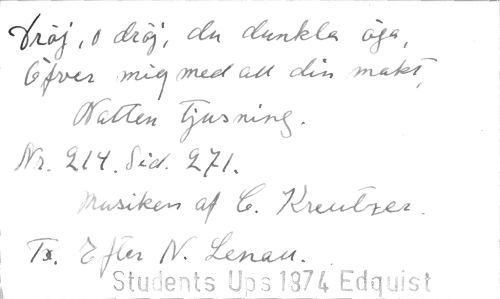 Dröj, o dröj, du dunkla öga,
Öfver mig med all din makt,
Natten tjusning.
Nr. 214. Sid. 271.
Musiken af C. Kreutzer.
Tx. Efter N. Lenau.
Students Ups 1874 Edquist